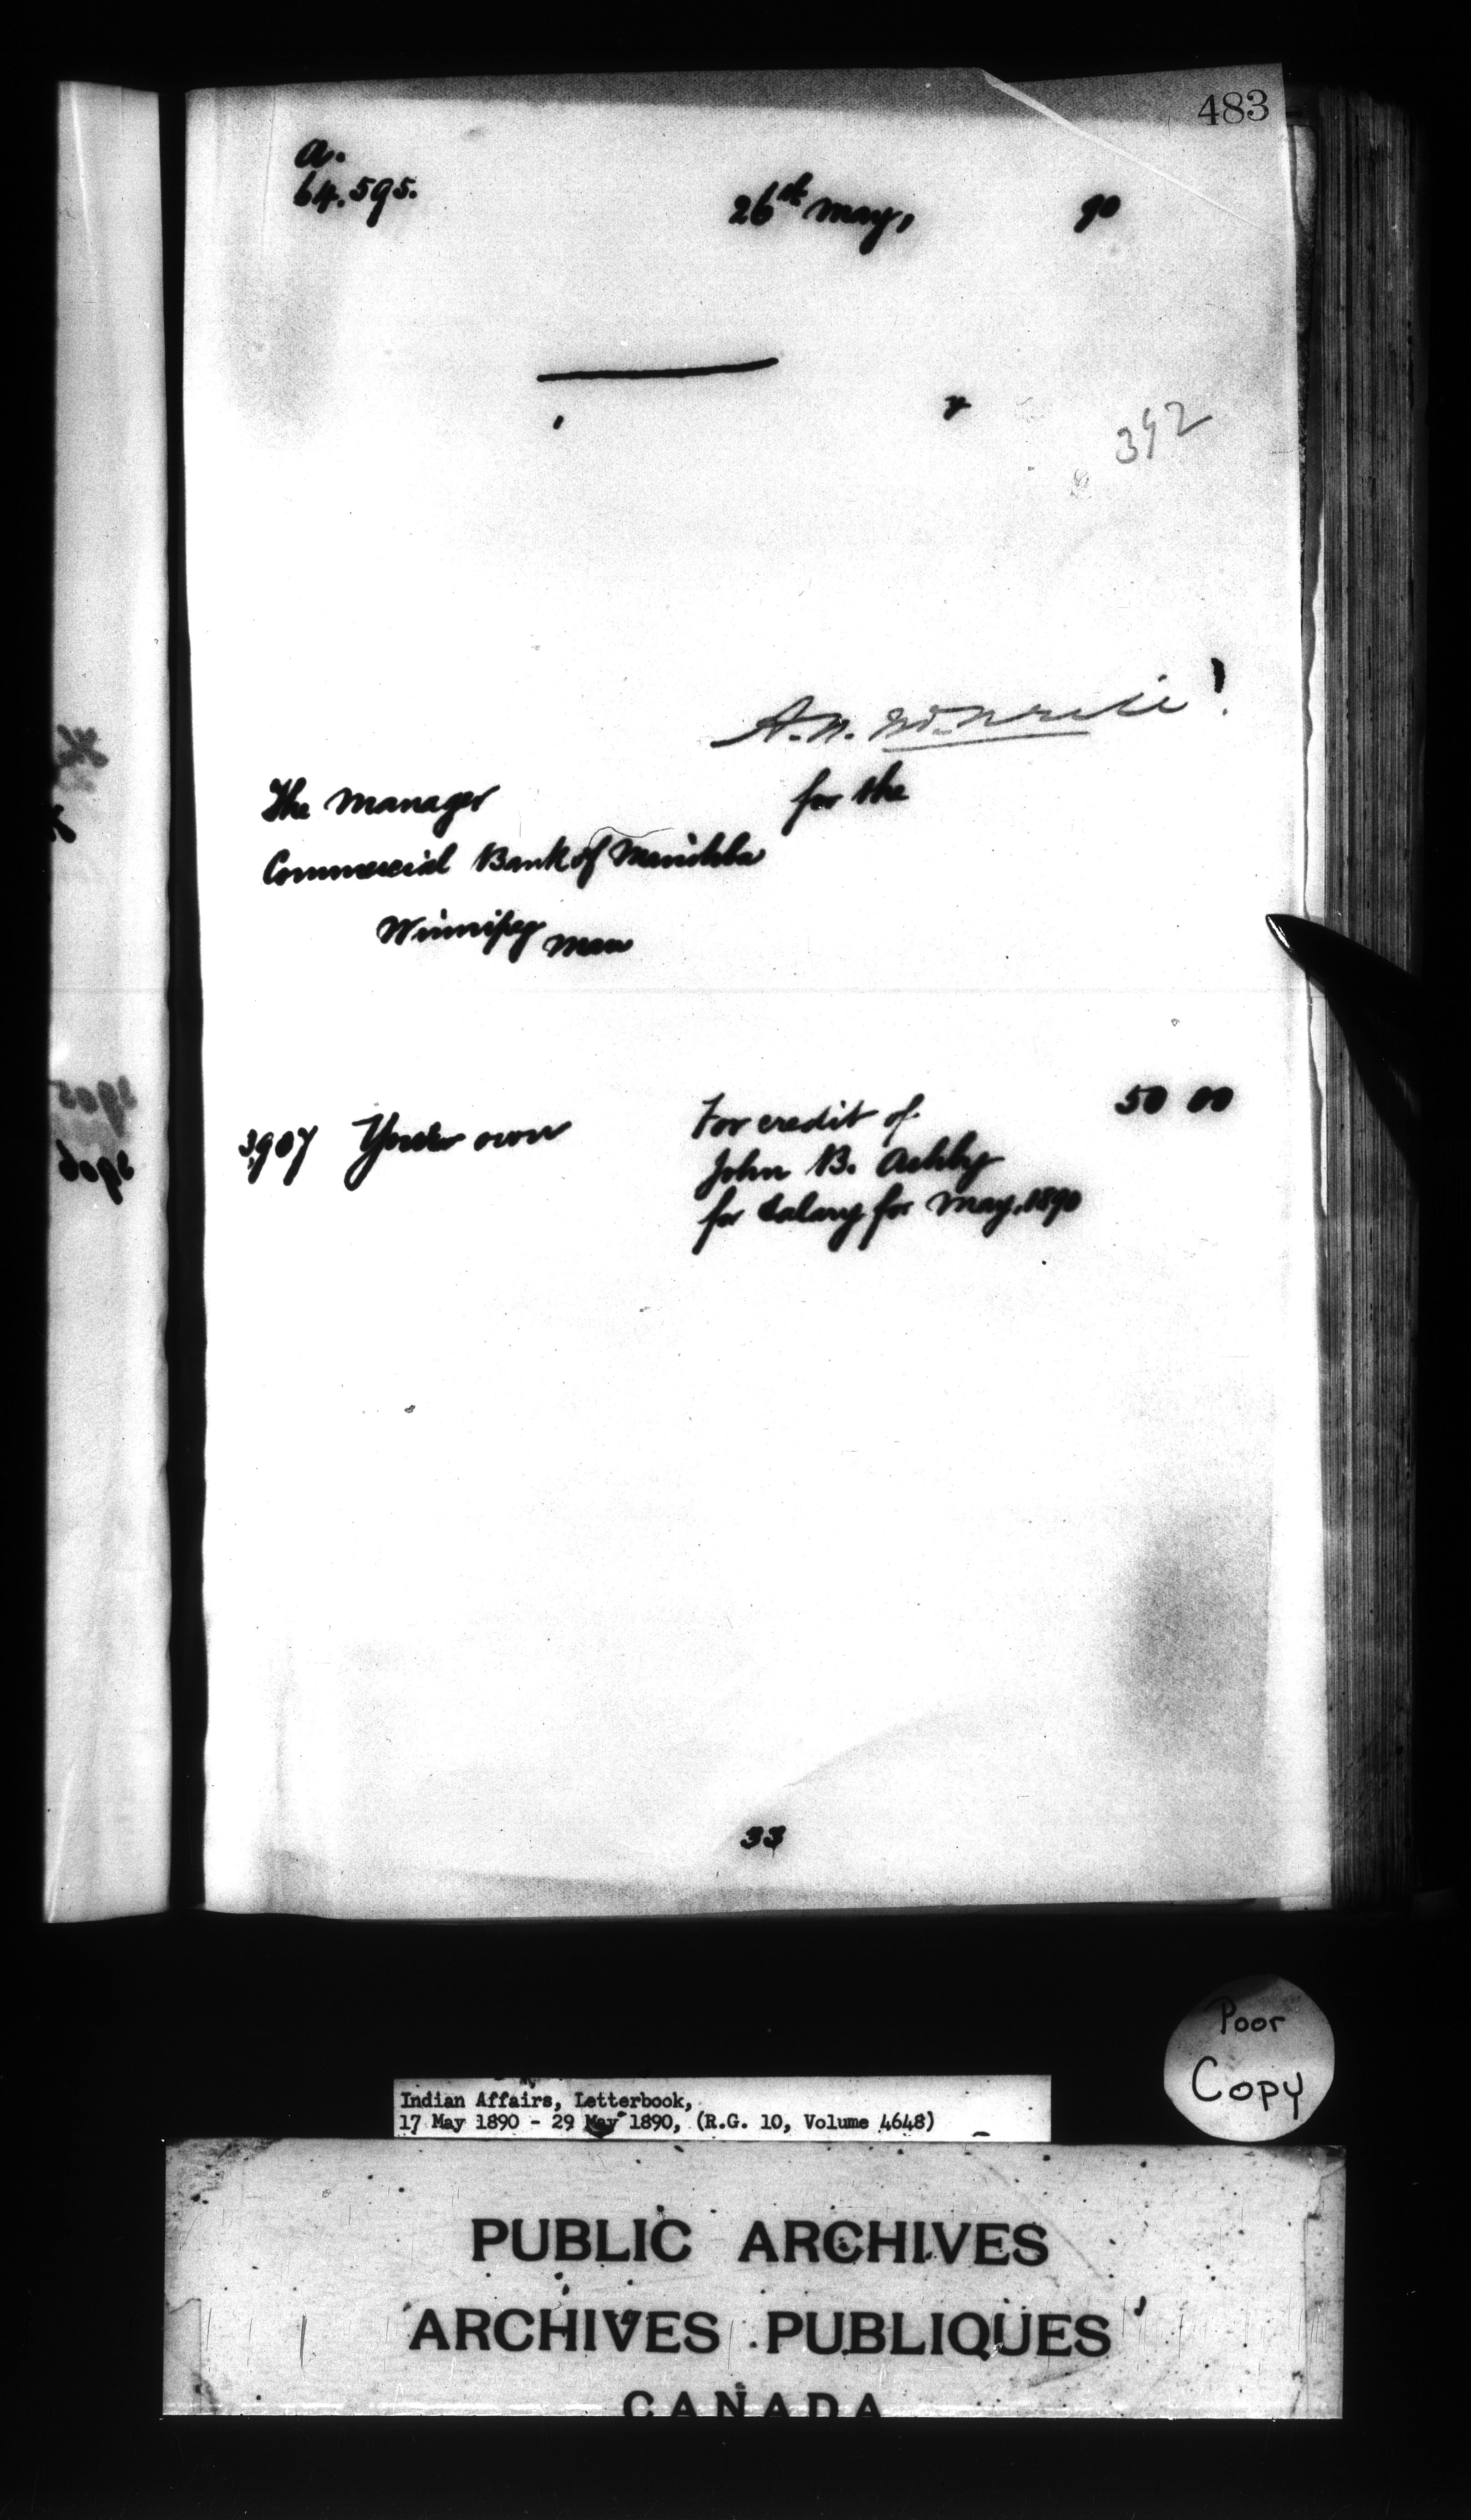 483
a.
64.595.
26th May, 90
392
A.N. McNeill
for the
The Manager
Commercial Bank of Manitoba
Winnipeg Man
3907 Your own For credit of 50 00
John B. Ashby
for Salary for May, 1890
33
Poor
Copy
Indian Affairs, Letterbook,
17 May 1890 - 29 May 1890, (R.G. 10, Volume 4648)
PUBLIC ARCHIVES
ARCHIVES PUBLIQUES
CANADA